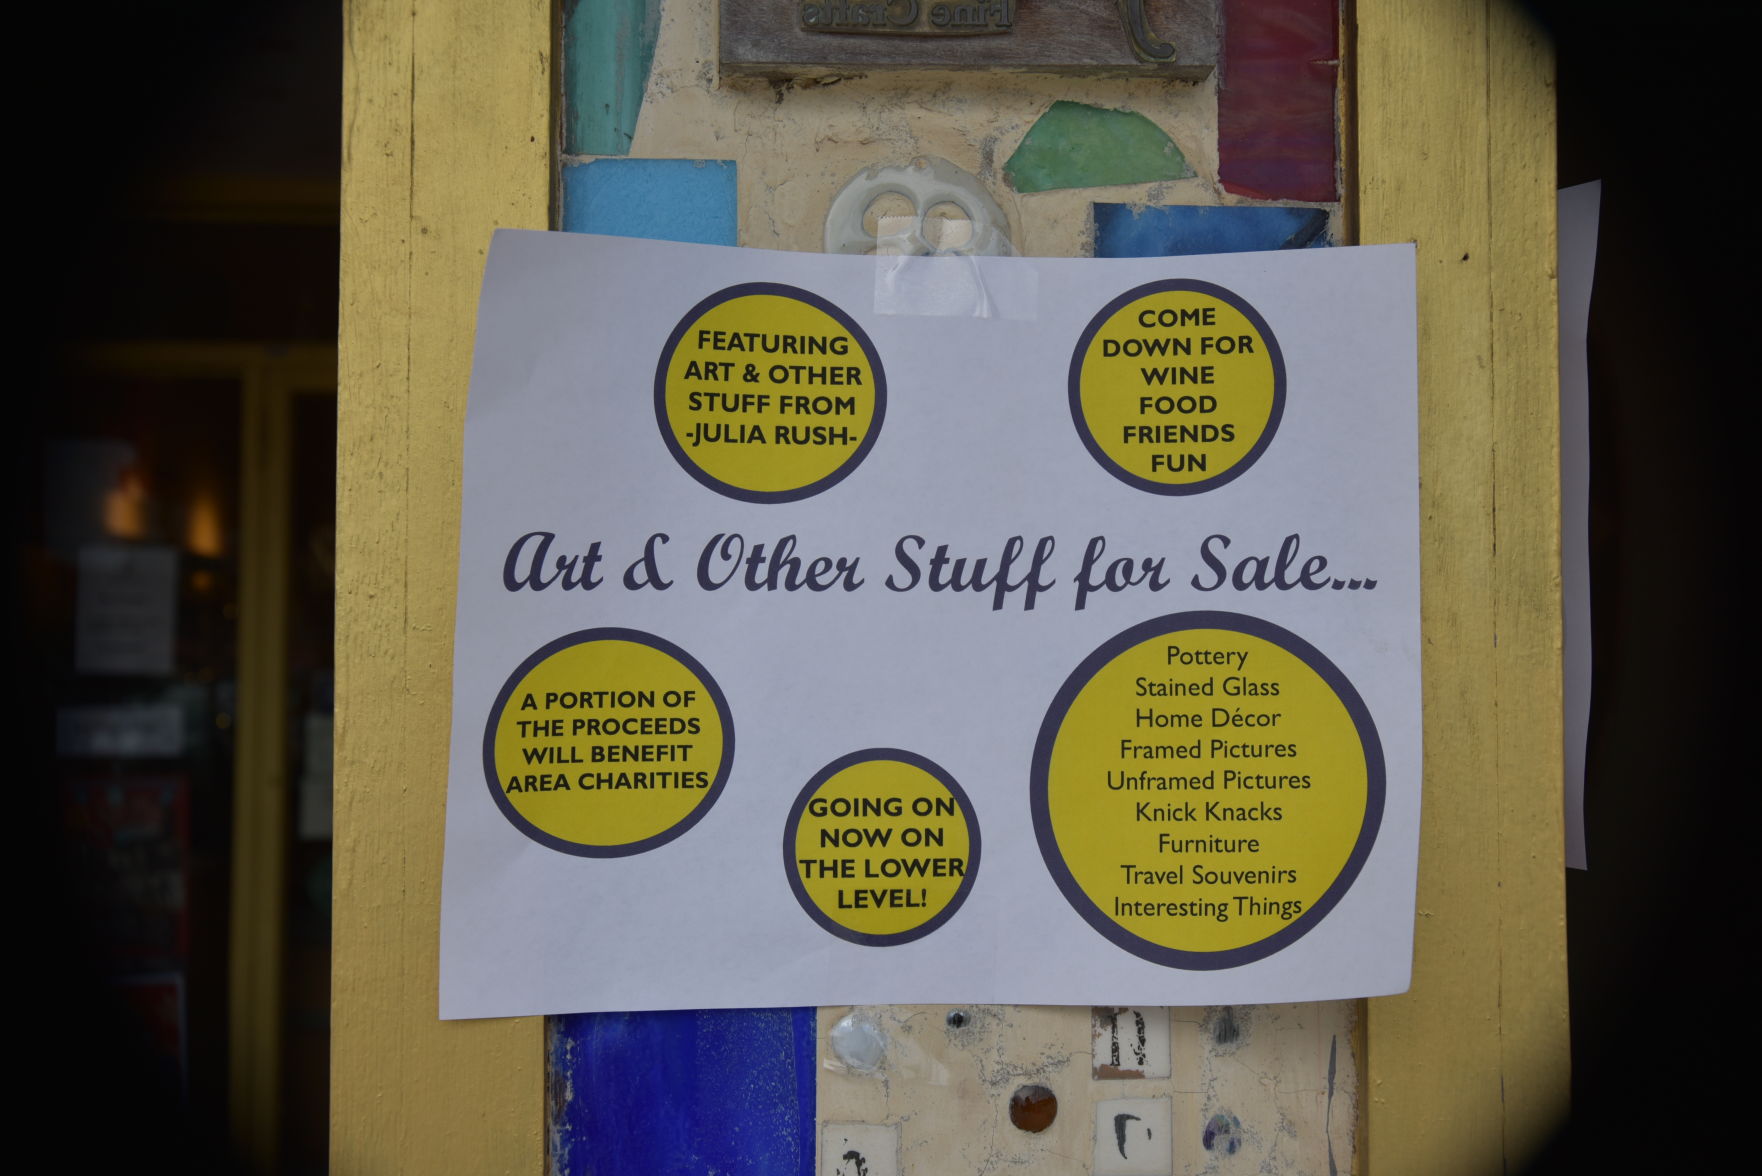 Fine Crafts
FEATURING
ART & OTHER
STUFF FROM
-JULIA RUSH-
COME
DOWN FOR
WINE
FOOD
FRIENDS
FUN
Art & Other Stuff for Sale...
A PORTION OF
THE PROCEEDS
WILL BENEFIT
AREA CHARITIES
GOING ON
NOW ON
THE LOWER
LEVEL!
Pottery
Stained Glass
Home Décor
Framed Pictures
Unframed Pictures
Knick Knacks
Furniture
Travel Souvenirs
Interesting Things